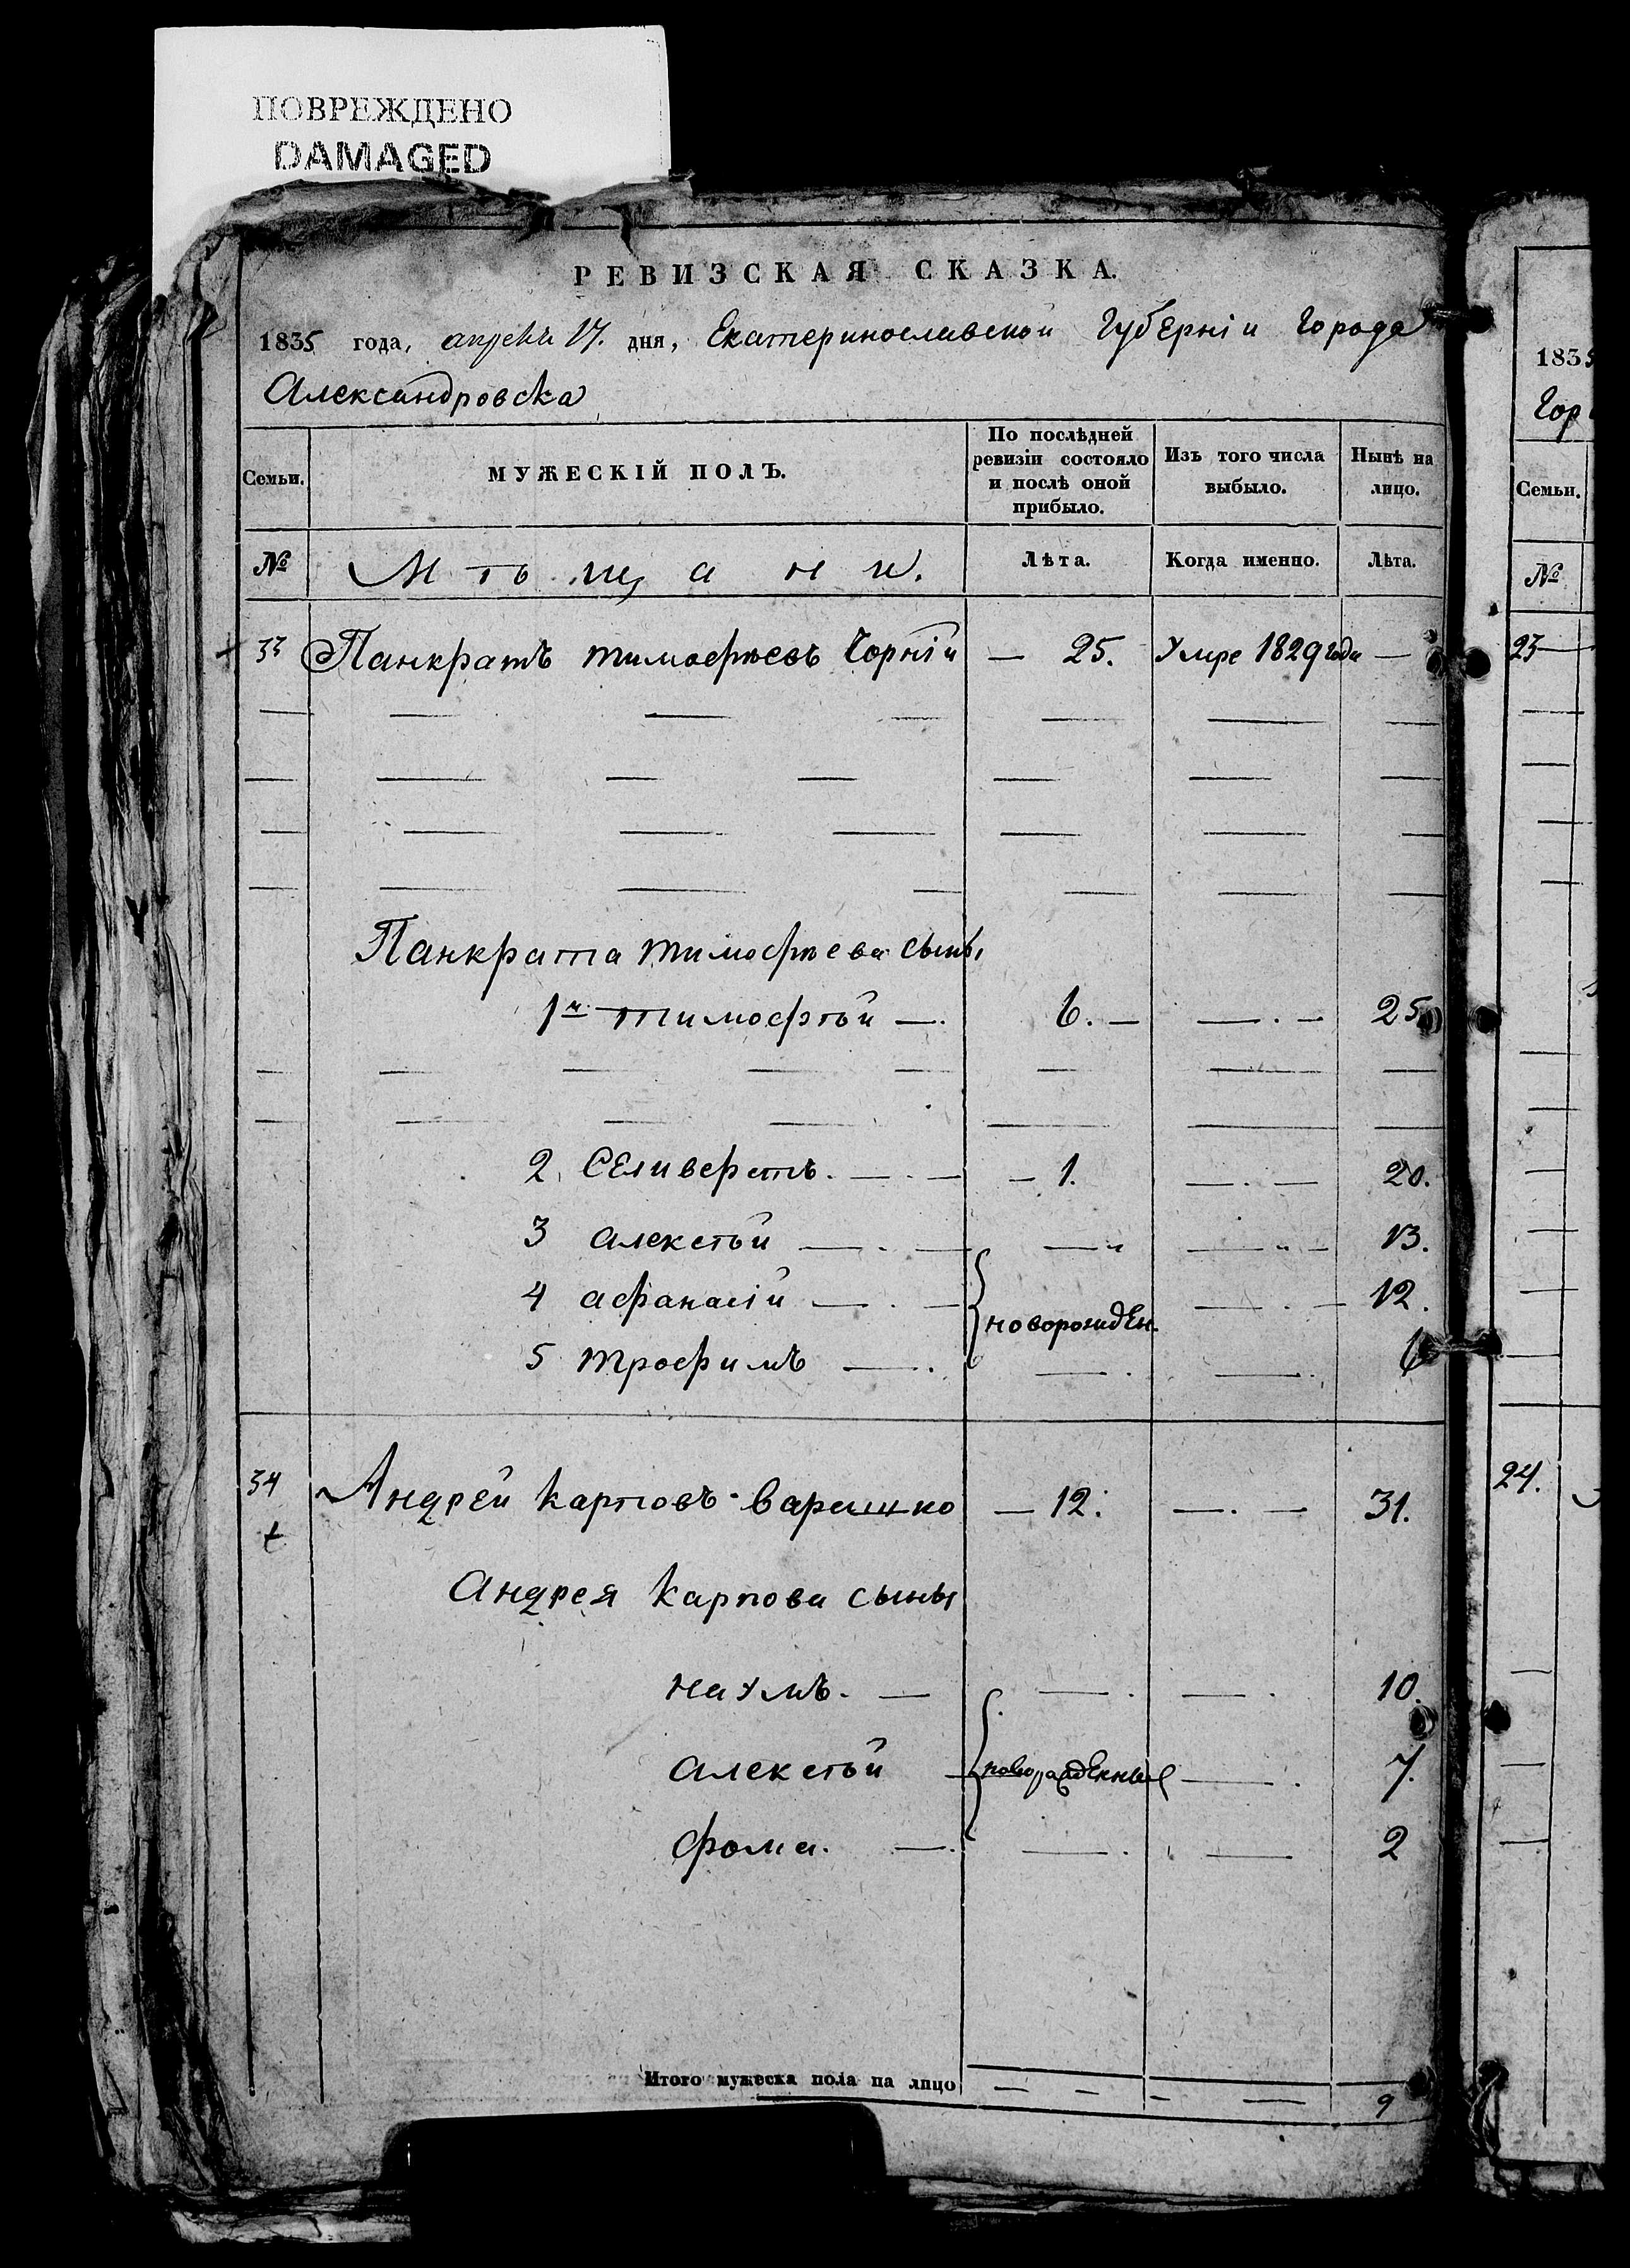 ПОВРЕЖДЕНО
DAMAGED
РЕВИЗСКАЯ СКАЗКА.
1835 года, апреля 17. дня, Екатеринославской Губерніи Города
Александровска
Семьи. МУЖЕСКІЙ ПОЛЪ. По послѣдней ревизіи состояло и послѣ оной прибыло. Изъ того числа выбыло. Нынѣ на лицо.
№ Мѣщани. Лѣта. Когда именно. Лѣта.
33 Панкратъ тимофѣевъ Чорній — 25. Умре 1829 года —
Панкрата тимофѣева сыны
1й тимофѣй —. 6. — —.— 25
2. Селиверстъ. —.— — 1. —.— 20.
3 алексѣй —.— —„ —„— 13.
4 афанасій —.— новорожден. —.— 12.
5 трофимъ —. —. —. 6
34 Андрей Карповъ Варешко — 12. —.— 31.
Андрея Карпова сыны
наумъ. — —. —. 10.
алексѣй — новорожденные —. 7.
фома. —. —. — 2
Итого мужеска пола на лицо — — — — 9
1835
Гор
Семьи.
№
23
24.